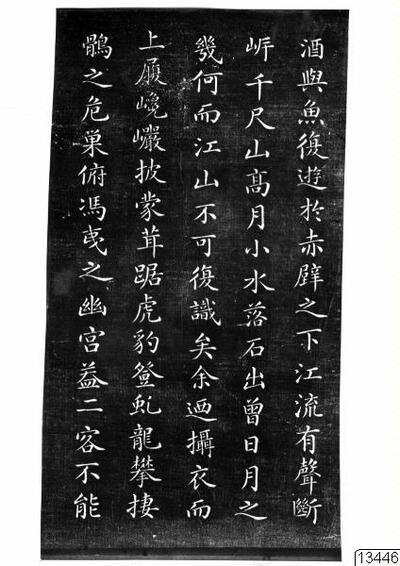 酒與魚復遊於赤壁之下江流有聲斷
岸千尺山髙月小水落石出曾日月之
幾何而江山不可復識矣余迺攝衣而
上履巉巖披蒙茸踞虎豹登虬龍攀捿
鶻之危巢俯馮夷之幽宮葢二客不能
13446